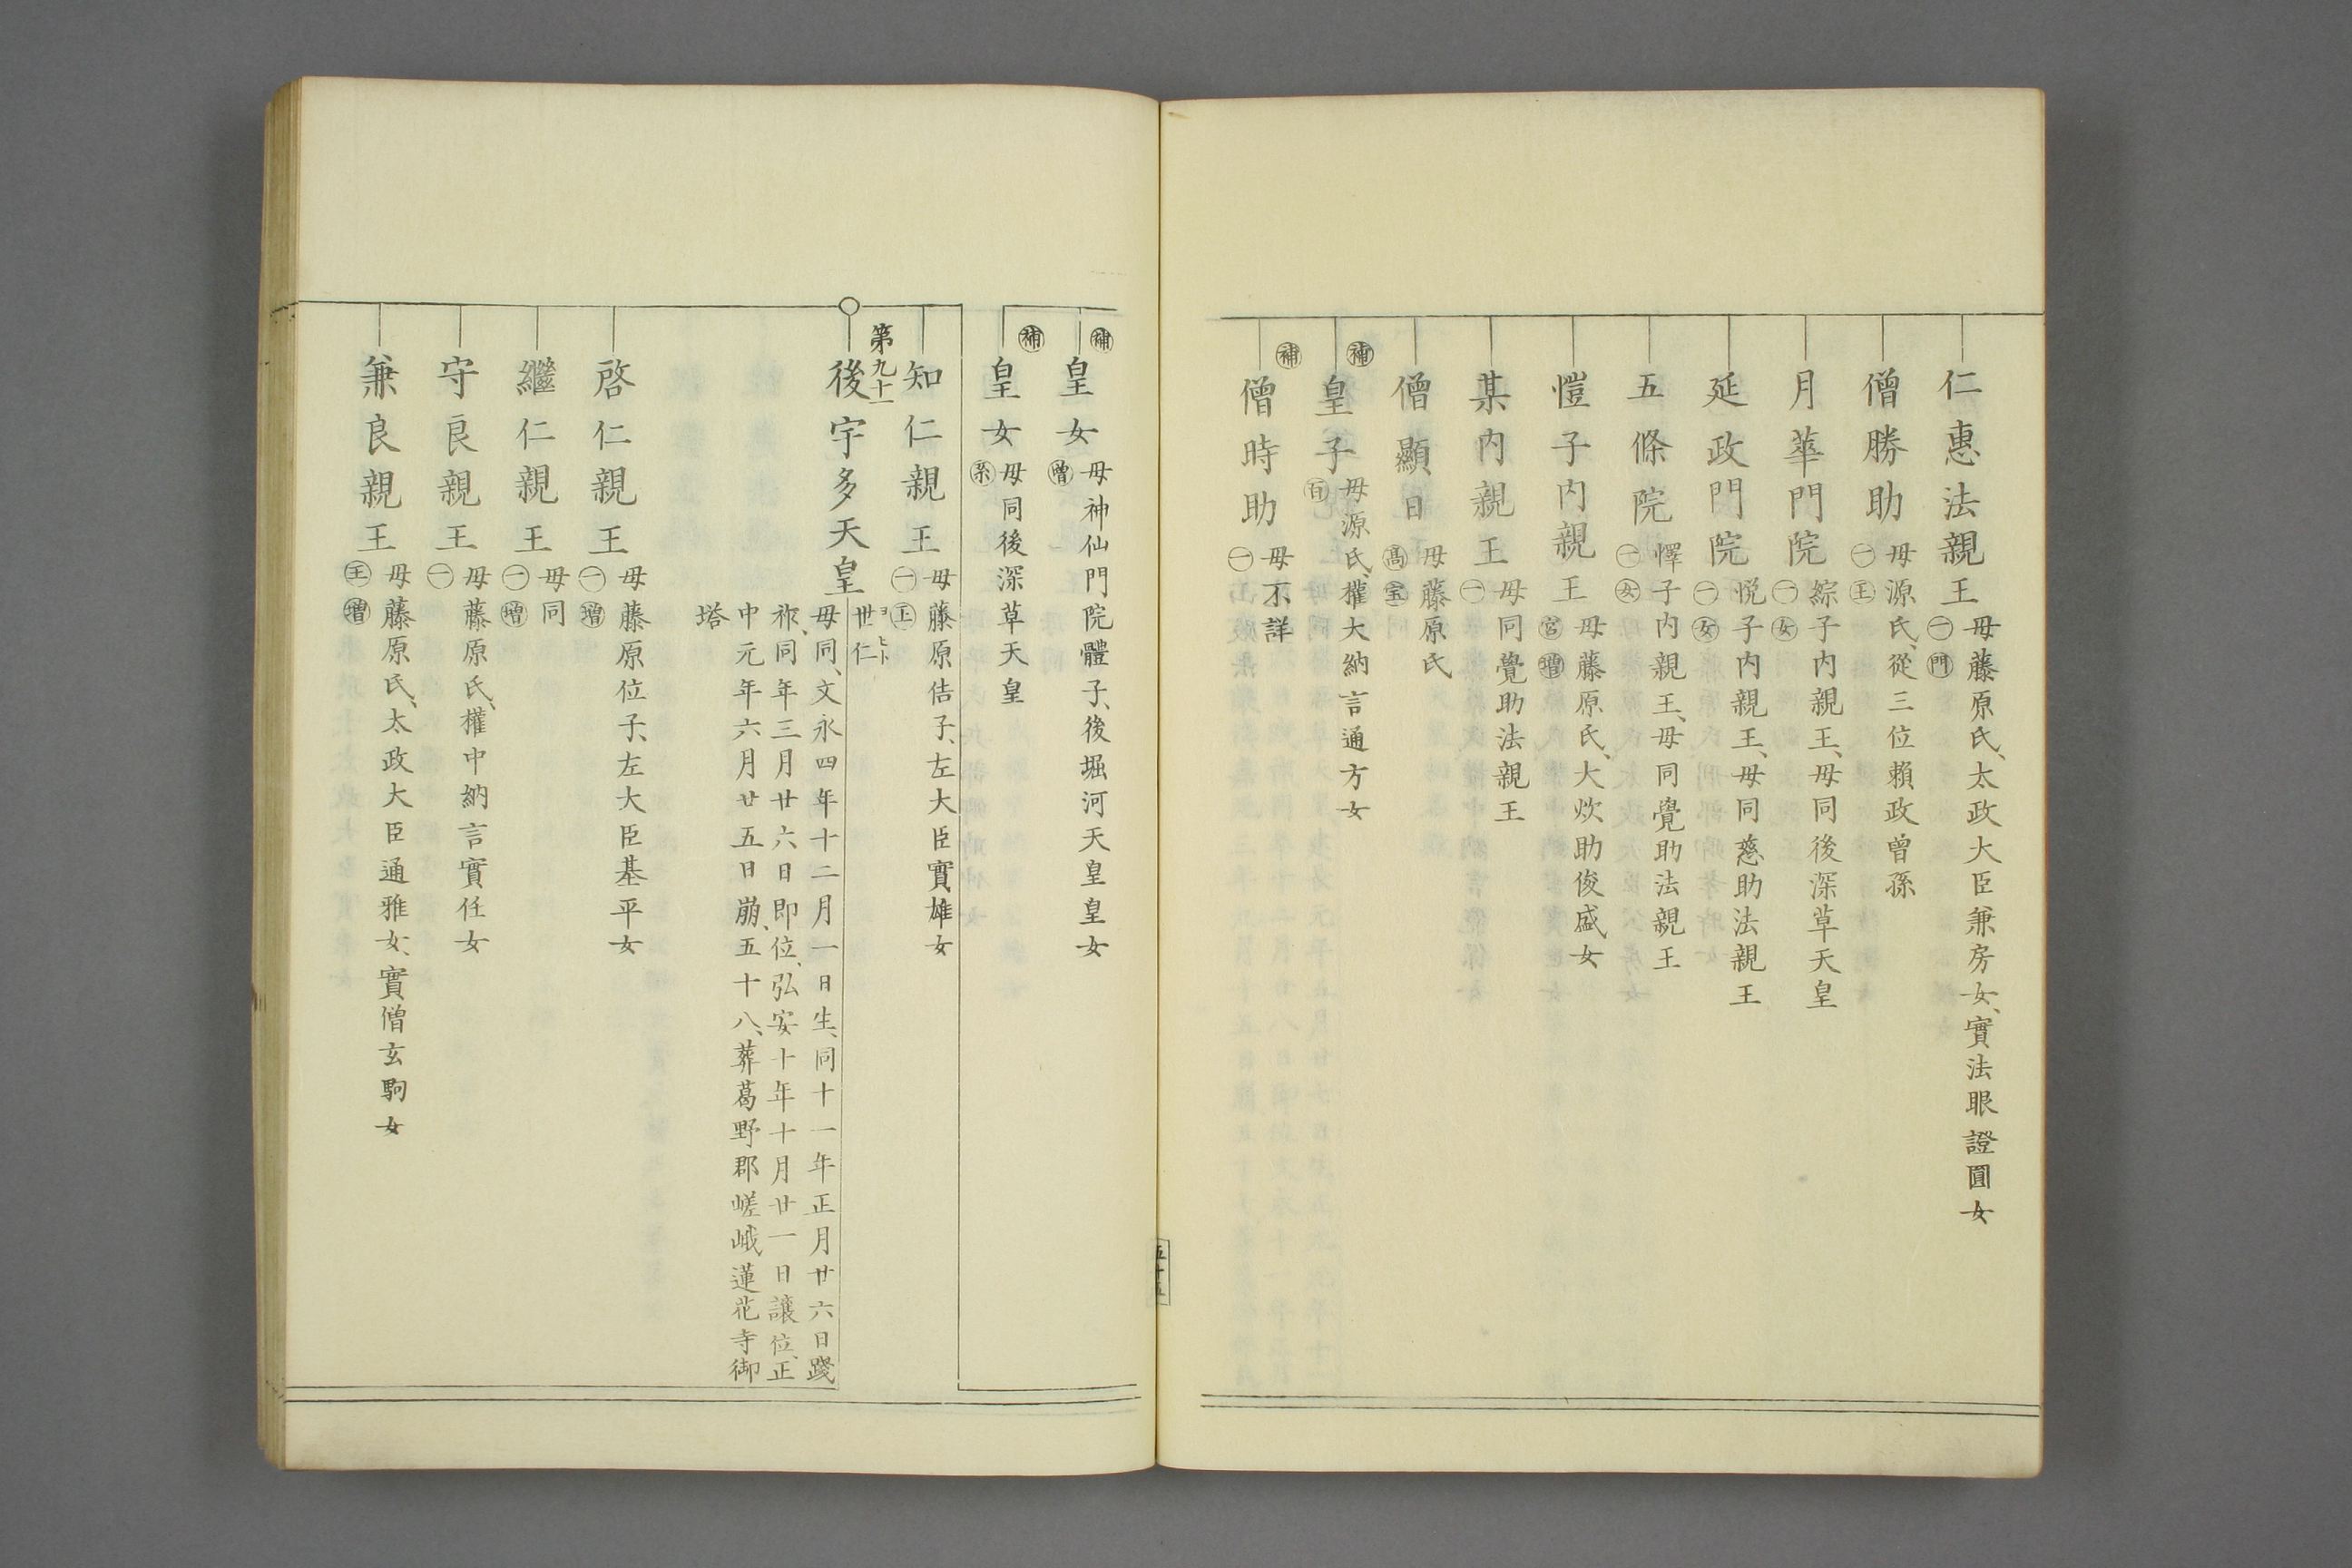 仁惠法親王
母藤原氏、太政大臣兼房女、實法眼證圓女
㊀門
僧勝助
母源氏、從三位賴政曾孫
㊀王
月華門院
綜子内親王、母同後深草天皇
㊀㊛
延政門院
悦子内親王、母同慈助法親王
㊀㊛
五條院
懌子内親王、母同覺助法親王
㊀㊛
愷子内親王
母藤原氏、大炊助俊盛女
宮增
某内親王
母同覺助法親王
㊀
僧顯日
母藤原氏
高宝
補
皇子
母源氏、權大納言通方女
百
補
僧時助
母不詳
㊀
五十五
補
皇女
母神仙門院體子、後堀河天皇皇女
增
補
皇女
母同後深草天皇
系
知仁親王
母藤原佶子、左大臣實雄女
㊀王
第九十一
後宇多天皇
世仁
ヨヒト
母同、文永四年十二月一日生、同十一年正月廿六日踐
祚、同年三月廿六日即位、弘安十年十月廿一日讓位、正
中元年六月廿五日崩、五十八、葬葛野郡嵯峨蓮花寺御
塔
啓仁親王
母藤原位子、左大臣基平女
㊀增
繼仁親王
母同
㊀增
守良親王
母藤原氏、權中納言實任女
㊀
兼良親王
母藤原氏、太政大臣通雅女、實僧玄駒女
王增